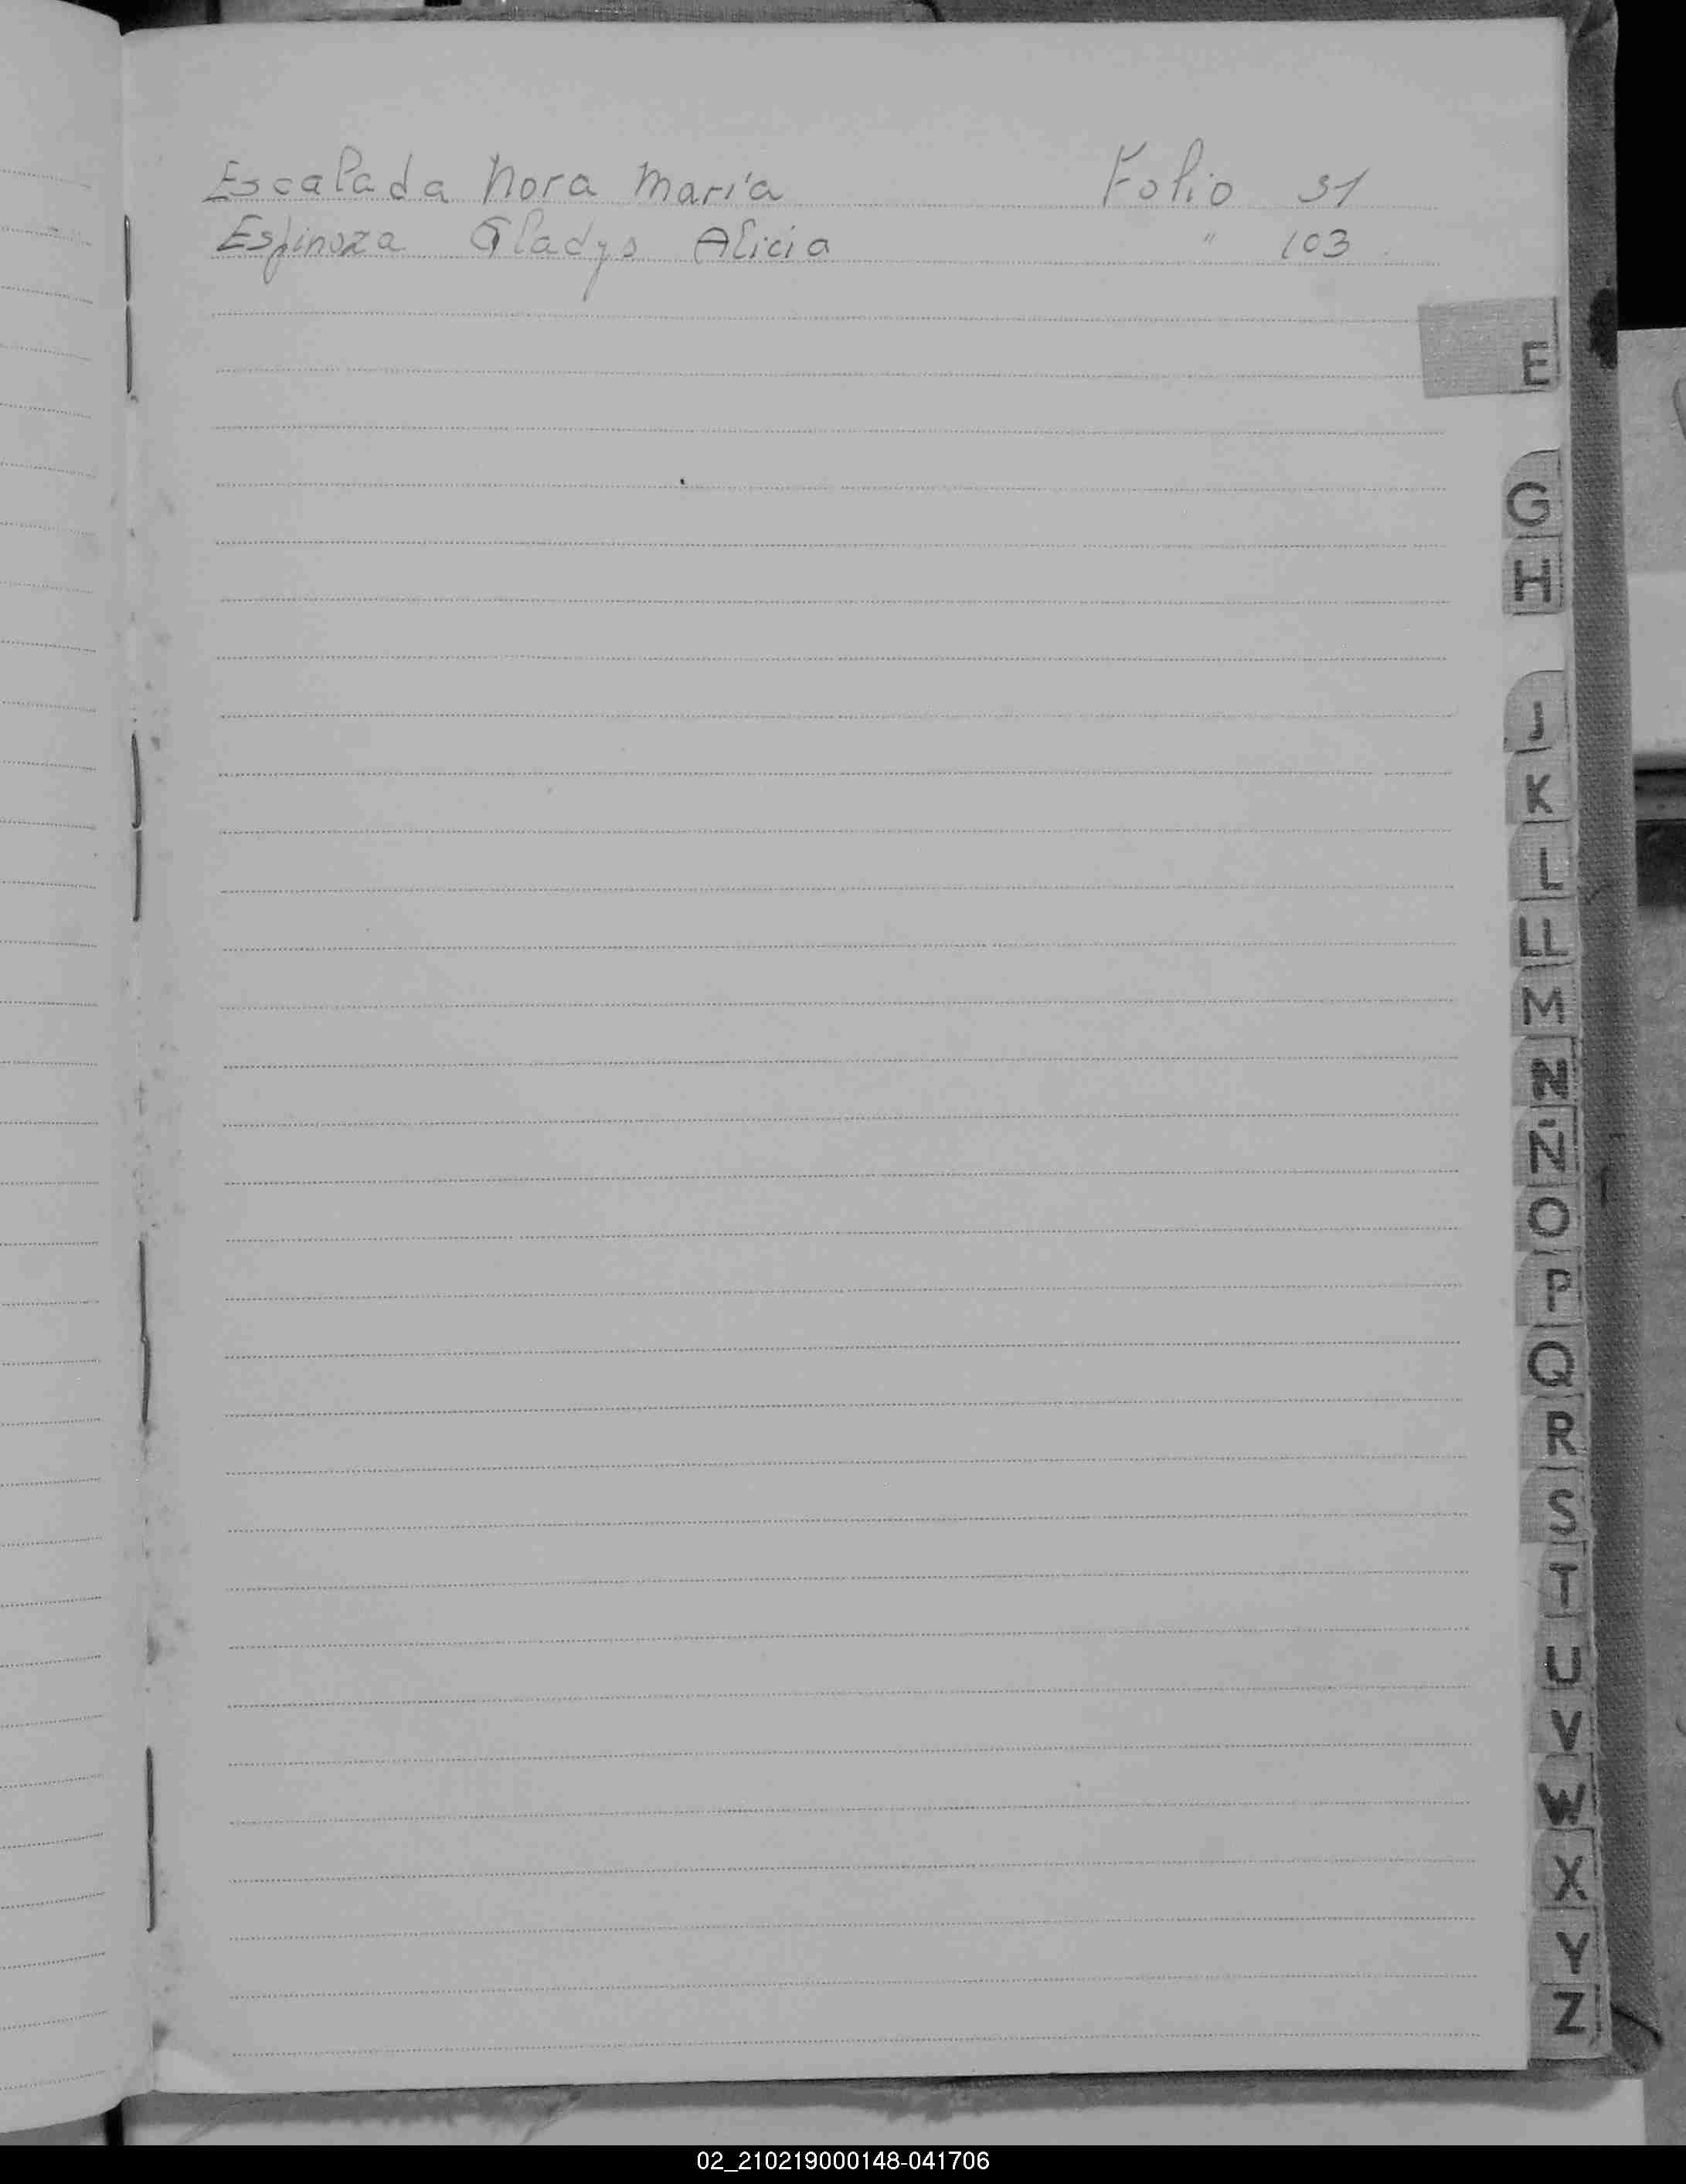 Escalada Nora María Folio 31
Espinoza Gladys Alicia " 103
E
G
H
J
K
L
LL
M
N
Ñ
O
P
Q
R
S
T
U
V
W
X
Y
Z
02_210219000148-041706